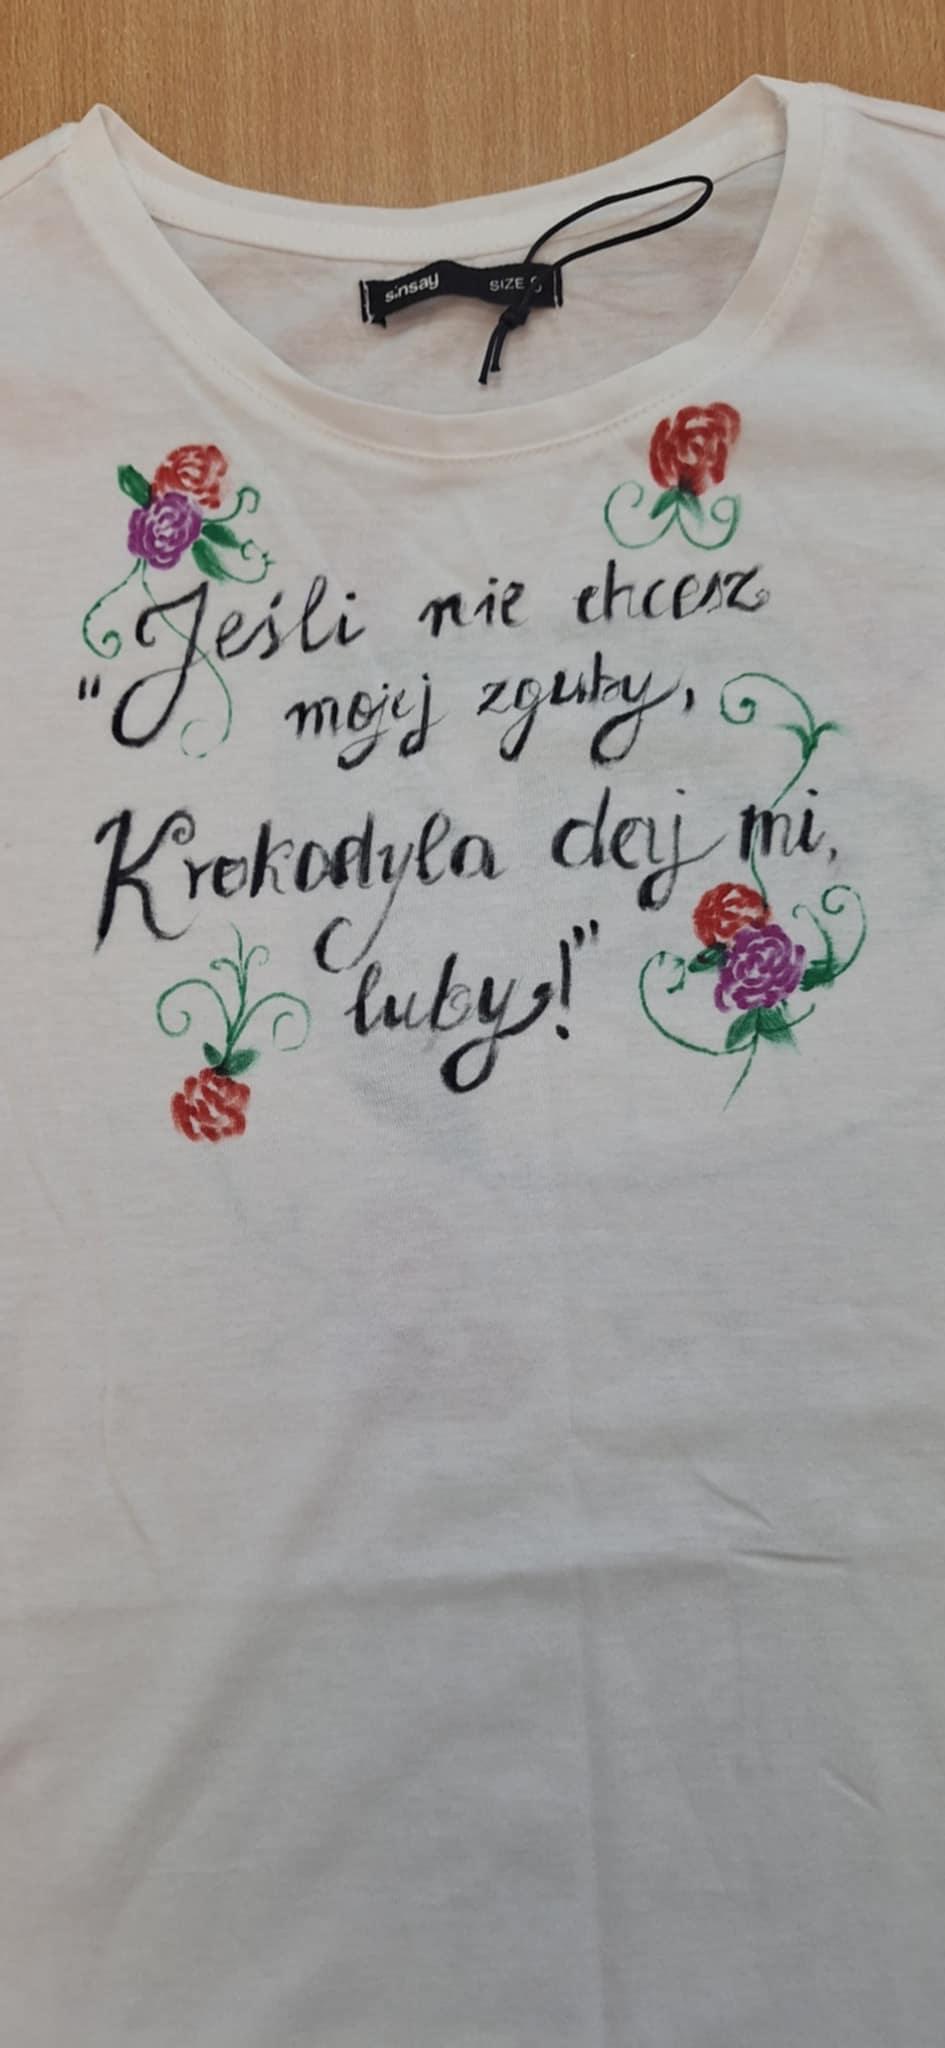 sinsay SIZE S
"Jeśli nie chcesz
mojej zguby,
Krokodyla daj mi,
luby!"